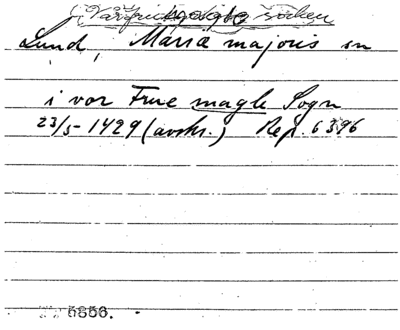 (Vårfrue magle socken
Lund, Maria majoris sn
i vor Frue magle Sogn
23/5-1429 (avskr.) Rep. 6396
5856.